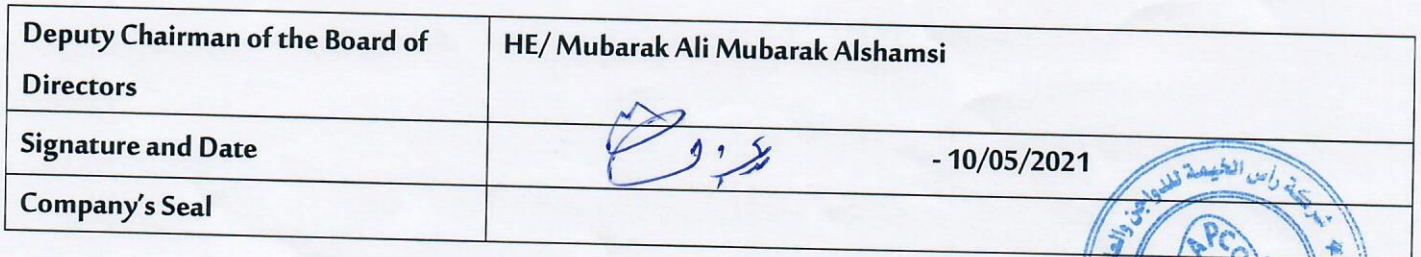 Deputy Chairman of the Board of
Directors
HE/ Mubarak Ali Mubarak Alshamsi
Signature and Date
- 10/05/2021
Company's Seal
شركة رأس الخيمة للدواجن
APCO